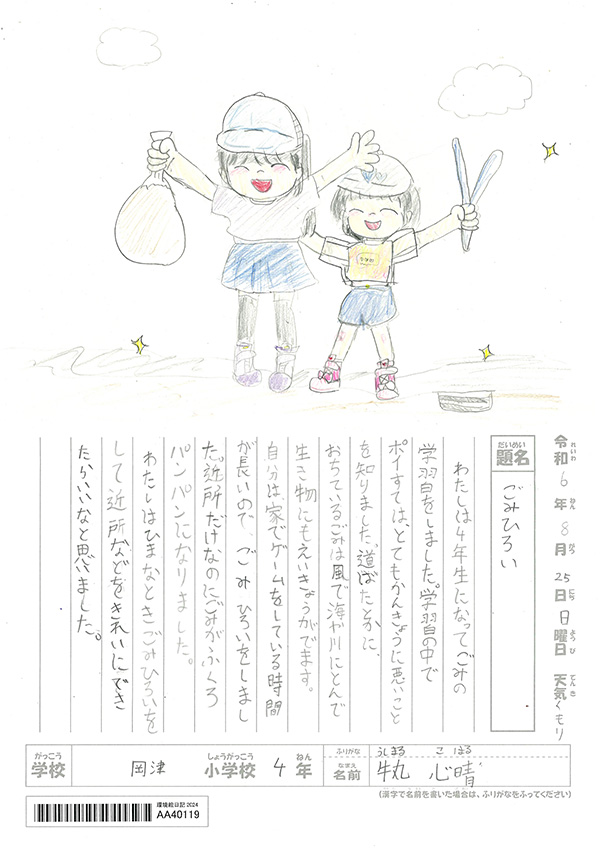 令和6年8月25日日曜日 天気くもり
れいわ ねん がつ にち ようび てんき
だいめい
題名 ごみひろい
わたしは4年生になってごみの
学習をしました。学習の中で
ポイすては、とてもかんきょうに悪いこと
を知りました。道ばたとかに、
おちているごみは風で海や川にとんで
生き物にもえいきょうがでます。
自分は、家でゲームをしている時間
が長いので、ごみひろいをしまし
た。近所だけなのにごみがふくろ
パンパンになりました。
わたしはひまなときごみひろいを
して近所などをきれいにでき
たらいいなと思いました。
がっこう しょうがっこう ねん ふりがな うしまる こはる
学校 岡津 小学校 4年 なまえ 名前 牛丸 心晴
(漢字で名前を書いた場合は、ふりがなをふってください)
環境絵日記2024
AA40119